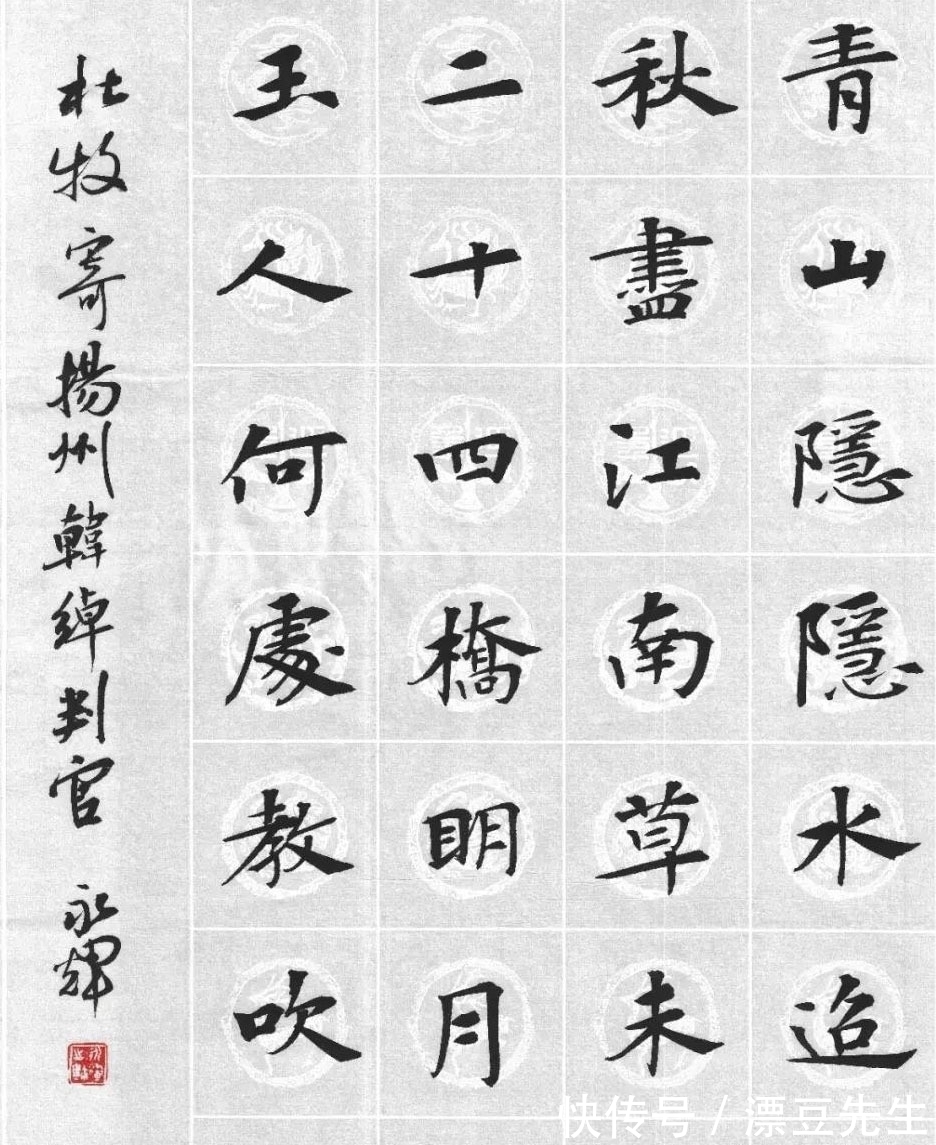 青山隱隱水迢
秋盡江南草未
二十四橋明月
玉人何處教吹
杜牧 寄揚州韓綽判官 永輝
快传号 / 漂豆先生